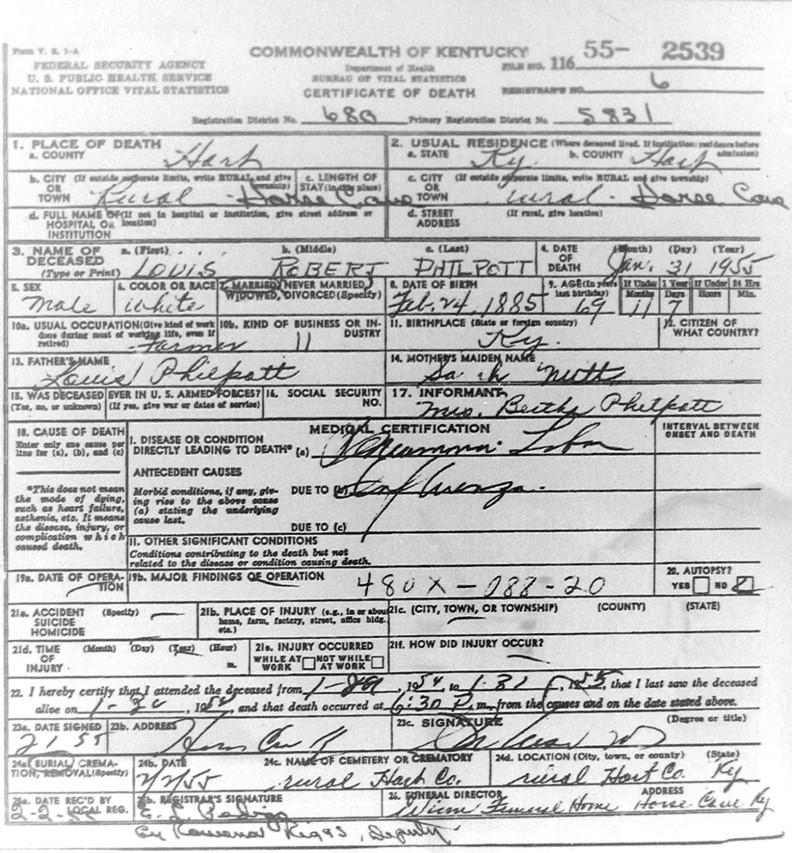 Form V. S. 1-A
COMMONWEALTH OF KENTUCKY
55- 2539
FEDERAL SECURITY AGENCY
U. S. PUBLIC HEALTH SERVICE
NATIONAL OFFICE VITAL STATISTICS
Department of Health
BUREAU OF VITAL STATISTICS
CERTIFICATE OF DEATH
FILE NO. 116
REGISTRAR'S NO. 6
Registration District No. 680 Primary Registration District No. 5831
1. PLACE OF DEATH
a. COUNTY Hart
2. USUAL RESIDENCE (Where deceased lived. If institution: residence before admission)
a. STATE Ky. b. COUNTY Hart
b. CITY (If outside corporate limits, write RURAL and give township)
OR
TOWN Rural - Horse Cave
c. LENGTH OF
STAY (in this place)
c. CITY (If outside corporate limits, write RURAL and give township)
OR
TOWN rural - Horse Cave
d. FULL NAME OF (If not in hospital or institution, give street address or location)
HOSPITAL OR
INSTITUTION
d. STREET (If rural, give location)
ADDRESS
3. NAME OF
DECEASED
(Type or Print)
a. (First) b. (Middle) c. (Last)
LOUIS ROBERT PHILPOTT
4. DATE
OF
DEATH
(Month) (Day) (Year)
Jan. 31 1955
5. SEX
Male
6. COLOR OR RACE
White
7. MARRIED, NEVER MARRIED,
WIDOWED, DIVORCED (Specify)
8. DATE OF BIRTH
Feb. 24, 1885
9. AGE (In years
last birthday)
69
If Under 1 Year
Months Days
11 7
If Under 24 Hrs
Hours Min.
10a. USUAL OCCUPATION (Give kind of work
done during most of working life, even if
retired)
Farmer
10b. KIND OF BUSINESS OR IN-
DUSTRY
11
11. BIRTHPLACE (State or foreign country)
Ky.
12. CITIZEN OF
WHAT COUNTRY?
13. FATHER'S NAME
Louis Philpott
14. MOTHER'S MAIDEN NAME
15. WAS DECEASED EVER IN U. S. ARMED FORCES?
(Yes, no, or unknown) (If yes, give war or dates of service)
16. SOCIAL SECURITY
NO.
17. INFORMANT
Mrs. Bertha Philpott
18. CAUSE OF DEATH
Enter only one cause per
line for (a), (b), and (c)
MEDICAL CERTIFICATION
INTERVAL BETWEEN
ONSET AND DEATH
I. DISEASE OR CONDITION
DIRECTLY LEADING TO DEATH* (a) Pneumonia - Lobar
*This does not mean
the mode of dying,
such as heart failure,
asthenia, etc. It means
the disease, injury, or
complication which
caused death.
ANTECEDENT CAUSES
Morbid conditions, if any, giv-
ing rise to the above cause
(a) stating the underlying
cause last.
DUE TO (b) Influenza.
DUE TO (c)
II. OTHER SIGNIFICANT CONDITIONS
Conditions contributing to the death but not
related to the disease or condition causing death.
19a. DATE OF OPERA-
TION
19b. MAJOR FINDINGS OF OPERATION
480X-088-20
20. AUTOPSY?
YES NO
21a. ACCIDENT (Specify)
SUICIDE
HOMICIDE
21b. PLACE OF INJURY (e.g., in or about
home, farm, factory, street, office bldg.
etc.)
21c. (CITY, TOWN, OR TOWNSHIP) (COUNTY) (STATE)
21d. TIME (Month) (Day) (Year) (Hour)
OF
INJURY m.
21e. INJURY OCCURRED
WHILE AT WORK NOT WHILE AT WORK
21f. HOW DID INJURY OCCUR?
22. I hereby certify that I attended the deceased from , 1954, to 1-31, 1955, that I last saw the deceased
alive on , and that death occurred at 6:30 P. m., from the causes and on the date stated above.
23a. DATE SIGNED
2 1 55
23b. ADDRESS
23c. SIGNATURE (Degree or title)
24a. BURIAL, CREMA-
TION, REMOVAL (Specify)
24b. DATE
2/2/55
24c. NAME OF CEMETERY OR CREMATORY
rural Hart Co.
24d. LOCATION (City, town, or county) (State)
rural Hart Co. Ky
25a. DATE REC'D BY
LOCAL REG.
25b. REGISTRAR'S SIGNATURE
By Rowena Riggs, Deputy
26. FUNERAL DIRECTOR ADDRESS
Winn Funeral Home Horse Cave Ky